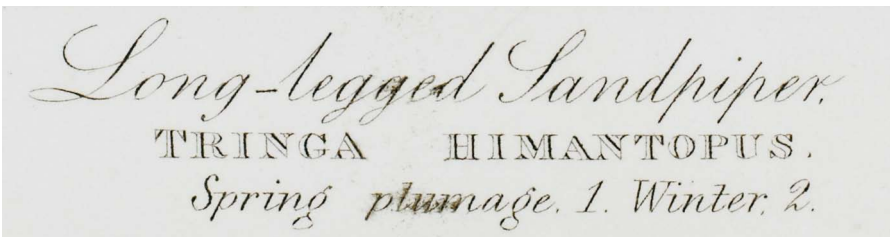 Long-legged Sandpiper.
TRINGA HIMANTOPUS.
Spring plumage. 1. Winter. 2.